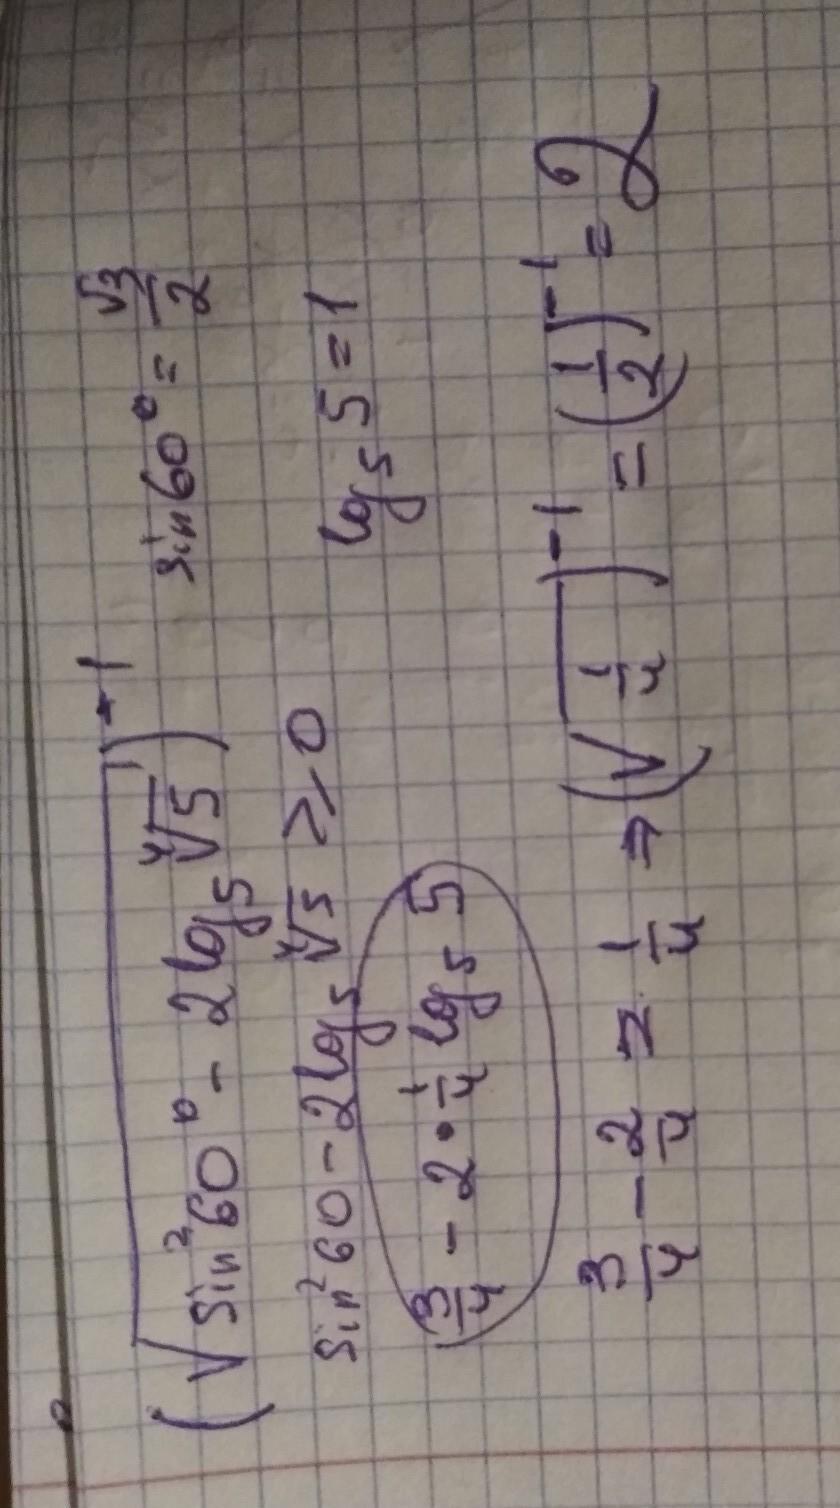 (√(sin²60° - 2log₅ ⁴√5))⁻¹ sin60° = √3/2
sin²60 - 2log₅ ⁴√5 ≥ 0 log₅ 5 = 1
3/4 - 2 • 1/4 log₅ 5
3/4 - 2/4 = 1/4 ⇒ (√(1/4))⁻¹ = (1/2)⁻¹ = 2